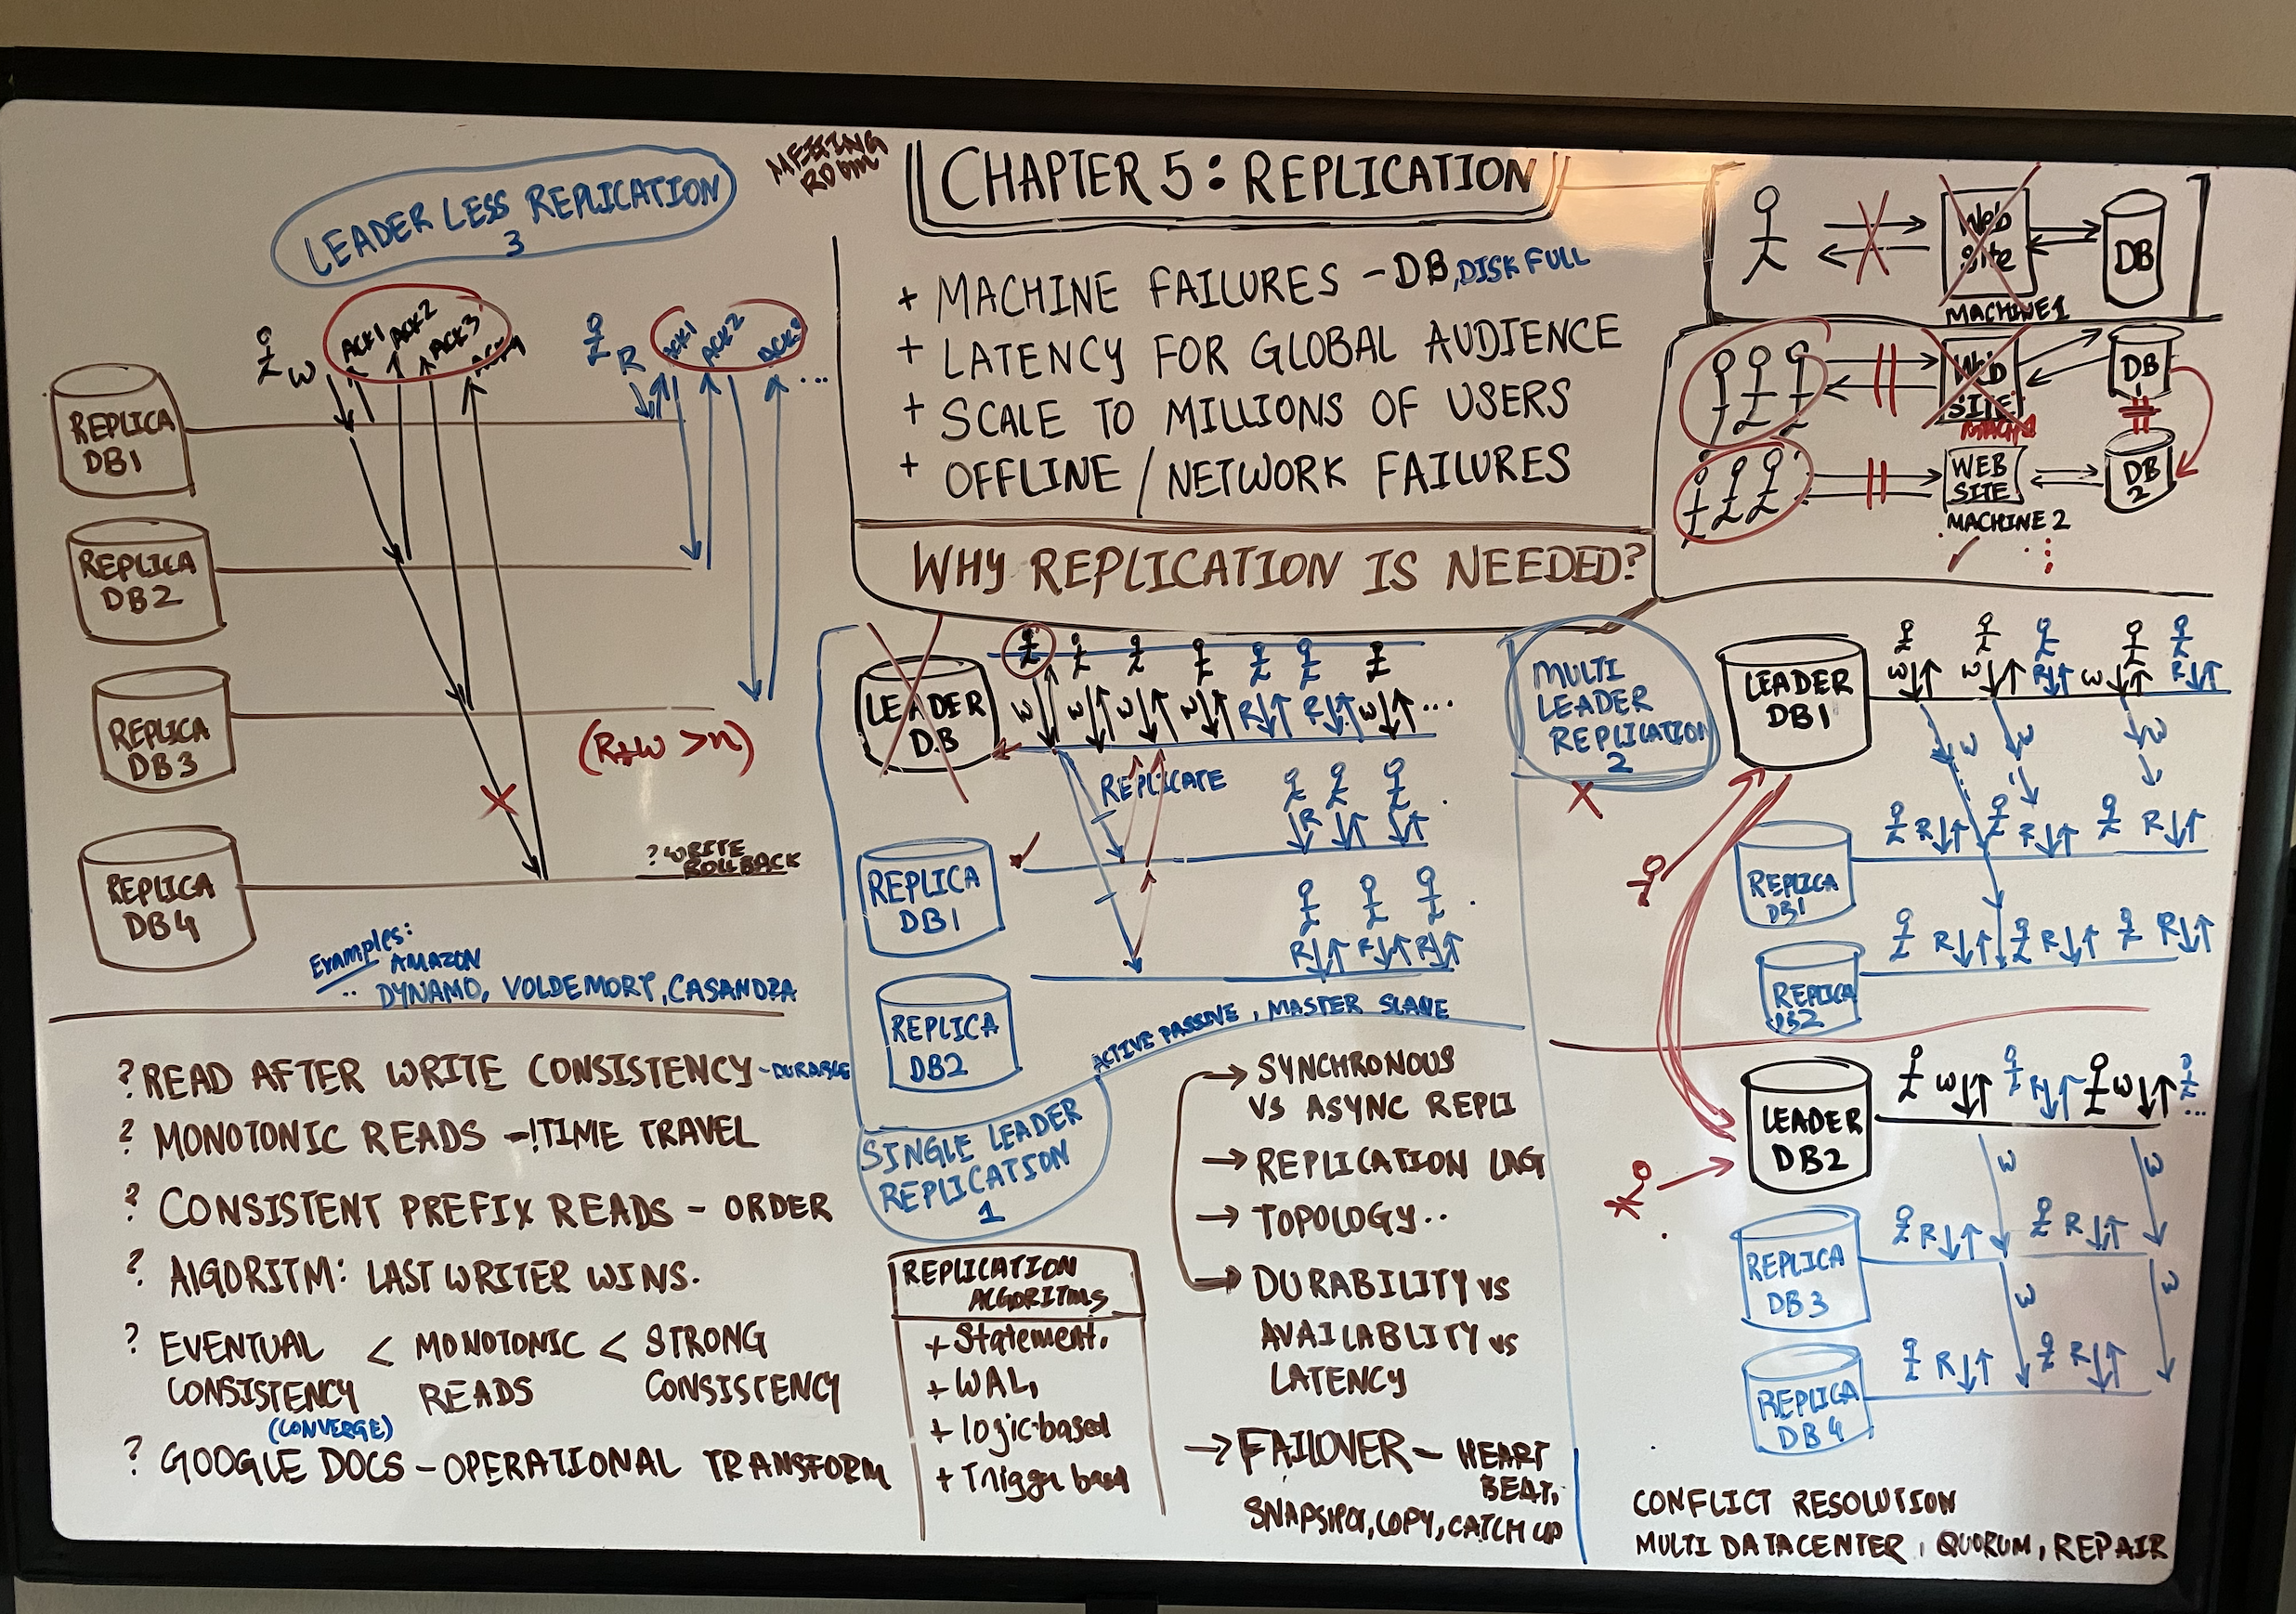 MEETING
ROOM
CHAPTER 5: REPLICATION
+ MACHINE FAILURES - DB, DISK FULL
+ LATENCY FOR GLOBAL AUDIENCE
+ SCALE TO MILLIONS OF USERS
+ OFFLINE / NETWORK FAILURES
WHY REPLICATION IS NEEDED?
Web
Site
MACHINE 1
DB
SITE
DB
1
WEB
SITE
MACHINE 2
DB
2
LEADER LESS REPLICATION
3
W
ACK1
ACK2
ACK3
ACK4
R
ACK1
ACK2
ACK3
...
REPLICA
DB1
REPLICA
DB2
REPLICA
DB3
REPLICA
DB4
(R+W >n)
? WRITE
ROLLBACK
Examples:
AMAZON
DYNAMO, VOLDEMORT, CASANDRA
? READ AFTER WRITE CONSISTENCY - DURABLE
? MONOTONIC READS - !TIME TRAVEL
? CONSISTENT PREFIX READS - ORDER
? ALGORITM: LAST WRITER WINS.
? EVENTUAL < MONOTONIC < STRONG
CONSISTENCY READS CONSISTENCY
(CONVERGE)
? GOOGLE DOCS - OPERATIONAL TRANSFORM
LEADER
DB
W W W W R R W ...
REPLICATE
R
REPLICA
DB1
R R R
REPLICA
DB2
ACTIVE PASSIVE, MASTER SLAVE
SINGLE LEADER
REPLICATION
1
REPLICATION
ALGORITMS
+ Statement,
+ WAL,
+ logic-based
+ Trigger based
→ SYNCHRONOUS
VS ASYNC REPLI
→ REPLICATION LAG
→ TOPOLOGY..
→ DURABILITY vs
AVAILABLITY vs
LATENCY
→ FAILOVER - HEART
BEAT,
SNAPSHOT, COPY, CATCH UP
MULTI
LEADER
REPLICATION
2
LEADER
DB1
W W R W R
W W W
R R R
REPLICA
DB1
R R R
REPLICA
DB2
LEADER
DB2
W R W ...
W W
R R
REPLICA
DB3
W W
R R
REPLICA
DB4
CONFLICT RESOLUTION
MULTI DATACENTER, QUORUM, REPAIR